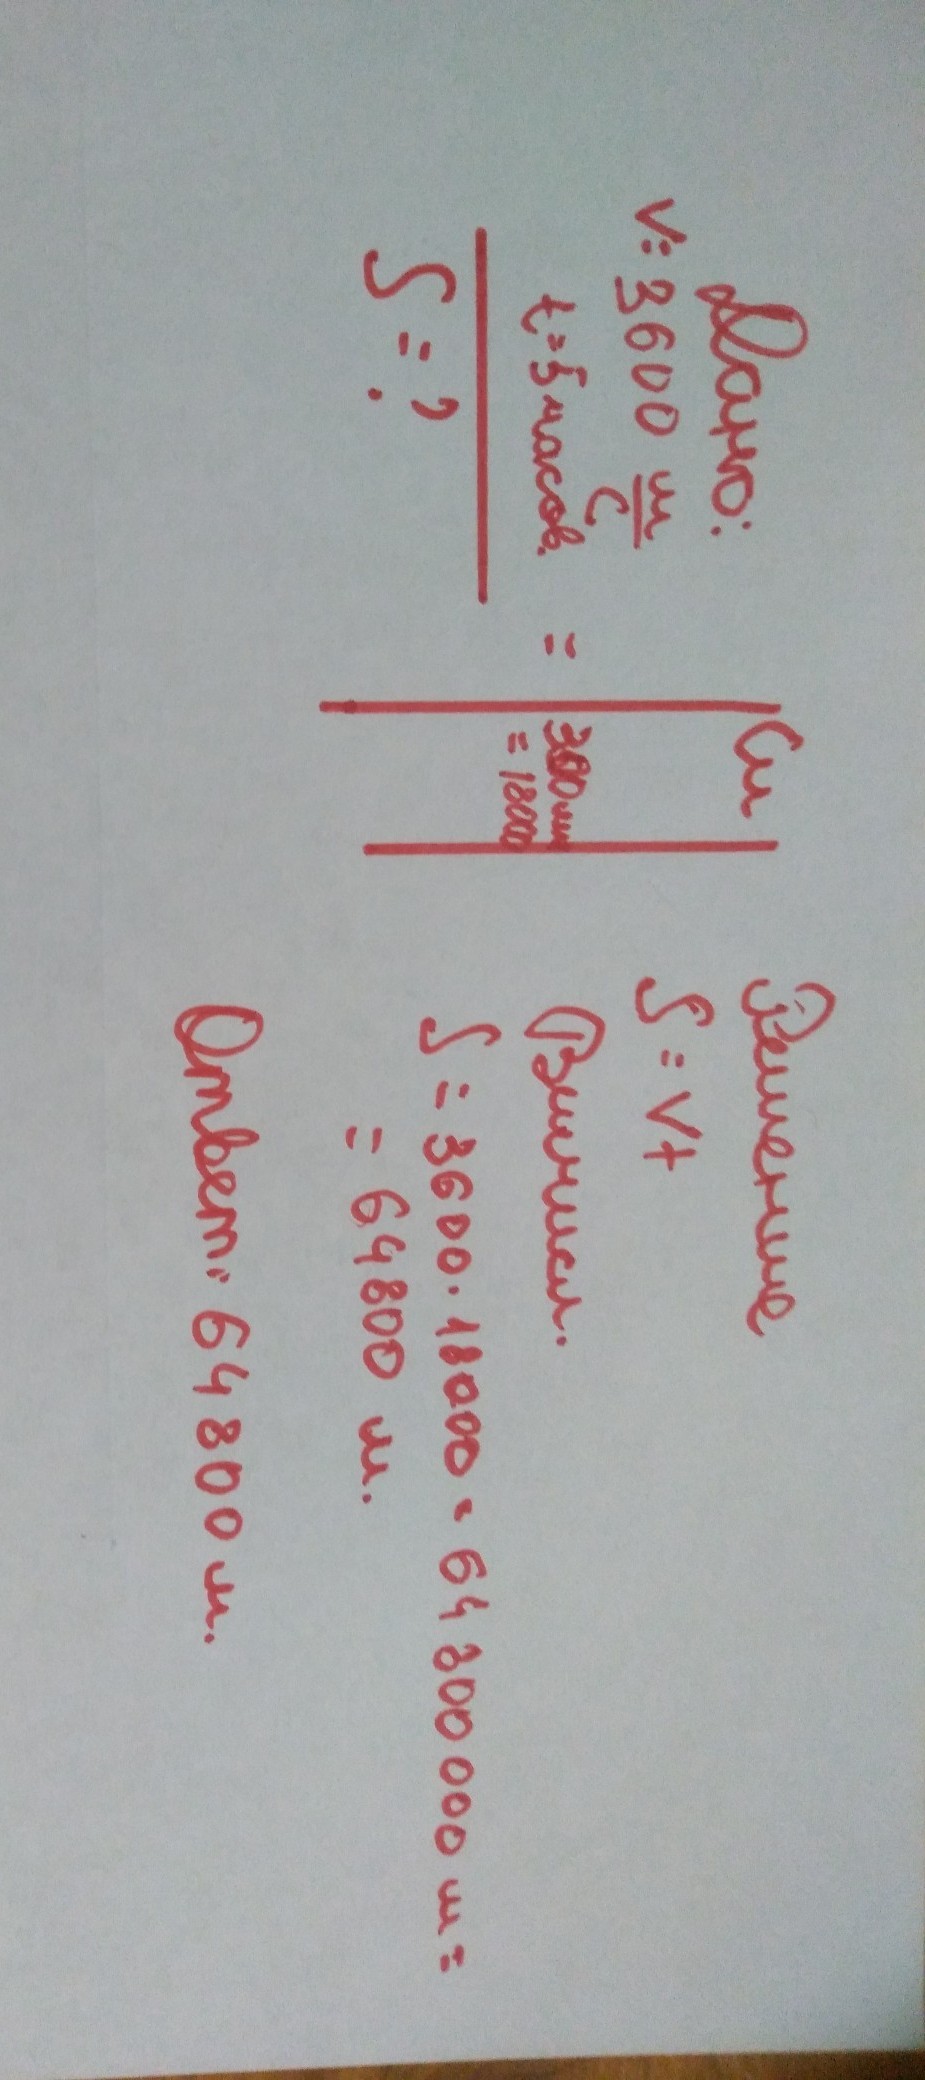 Дано:
v = 3600 м/с
t = 5 часов. =
S = ?
Си
300 мин
= 18000
Решение
S = vt
Вычисл.
S = 3600 · 18000 = 64 800 000 м =
= 64800 м.
Ответ: 64800 м.